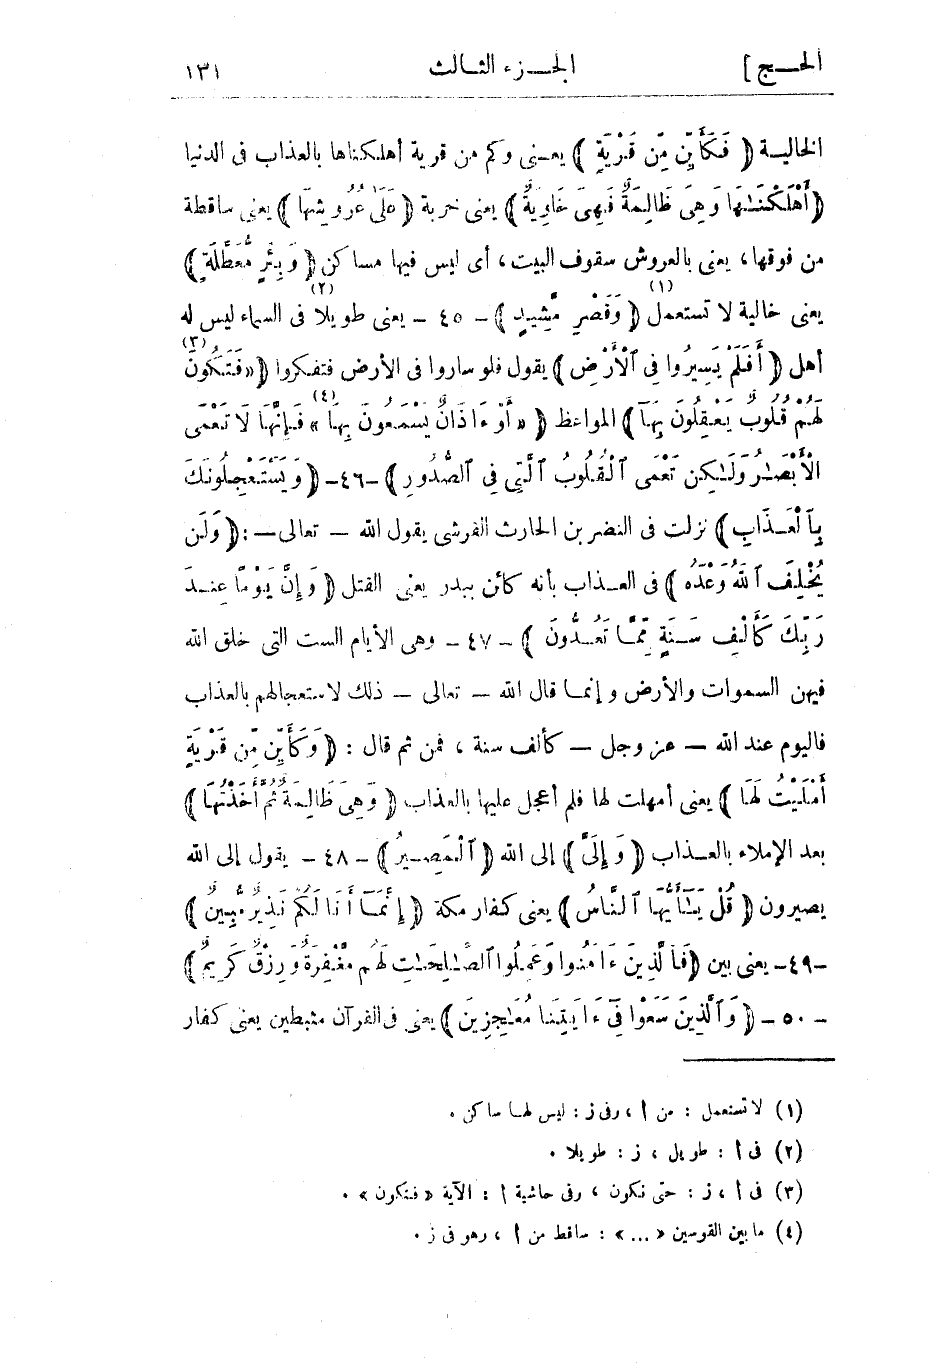 الحـــج ]
الجـــزء الثـــالث
١٣١
الخاليـة ﴿ فَكَأَيِّن مِّن قَرْيَةٍ ﴾ يعـنى وكم من قرية أهلـكناها بالعذاب فى الدنيا
﴿أَهْلَكْنَـٰهَا وَهِىَ ظَالِمَةٌ فَهِىَ خَاوِيَةٌ﴾ يعنى خربة ﴿عَلَىٰ عُرُوشِهَا﴾ يعنى ساقطة
من فوقها، يعنى بالعروش سقوف البيت، أى ليس فيها مساكن ﴿ وَبِئْرٍ مُّعَطَّلَةٍ ﴾
يعنى خالية لا تستعمل (١) ﴿ وَقَصْرٍ مَّشِيدٍ ﴾ ـ ٤٥ ـ يعنى طويلا (٢) فى السماء ليس له
أهل ﴿ أَفَلَمْ يَسِيرُوا فِى ٱلْأَرْضِ ﴾ يقول فلو ساروا فى الأرض فتفكروا ﴿ « فَتَكُونَ (٣)
لَهُمْ قُلُوبٌ يَعْقِلُونَ بِهَآ ﴾ المواعظ ﴿ « أَوْ ءَاذَانٌ يَسْمَعُونَ بِهَا » (٤) فَإِنَّهَا لَا تَعْمَى
الْأَبْصَـٰرُ وَلَـٰكِن تَعْمَى ٱلْقُلُوبُ ٱلَّتِى فِى ٱلصُّدُورِ ﴾ ـ٤٦ـ ﴿ وَيَسْتَعْجِلُونَكَ
بِٱلْعَـذَابِ ﴾ نزلت فى النضر بن الحارث القرشى يقول الله ـ تعالى ـ : ﴿ وَلَن
يُخْلِفَ ٱللَّهُ وَعْدَهُ ﴾ فى العـذاب بأنه كائن ببدر يعنى القتل ﴿ وَإِنَّ يَوْمًا عِنـدَ
رَبِّكَ كَأَلْفِ سَـنَةٍ مِّمَّا تَعُـدُّونَ ﴾ ـ ٤٧ ـ وهى الأيام الست التى خلق الله
فيهن السموات والأرض و إنمـا قال الله ـ تعالى ـ ذلك لاستعجالهم بالعذاب
فاليوم عند الله ـ عز وجل ـ كألف سنة ، فمن ثم قال : ﴿ وَكَأَيِّن مِّن قَرْيَةٍ
أَمْلَيْتُ لَهَا ﴾ يعنى أمهلت لها فلم أعجل عليها بالعذاب ﴿ وَهِىَ ظَالِمَةٌ ثُمَّ أَخَذْتُهَا ﴾
بعد الإملاء بالعـذاب ﴿ وَإِلَىَّ ﴾ إلى الله ﴿ ٱلْمَصِـيرُ ﴾ ـ ٤٨ ـ يقول إلى الله
يصيرون ﴿ قُلْ يَـٰٓأَيُّهَا ٱلنَّاسُ ﴾ يعنى كفار مكة ﴿ إِنَّمَـآ أَنَا لَكُمْ نَذِيرٌ مُّبِينٌ ﴾
ـ٤٩ـ يعنى بين ﴿ فَٱلَّذِينَ ءَامَنُوا وَعَمِلُوا ٱلصَّـٰلِحَـٰتِ لَهُم مَّغْفِرَةٌ وَرِزْقٌ كَرِيمٌ ﴾
ـ ٥٠ ـ ﴿ وَٱلَّذِينَ سَعَوْا فِىٓ ءَايَـٰتِنَا مُعَـٰجِزِينَ ﴾ يعنى فى القرآن مثبطين يعنى كفار
(١) لا تستعمل : من أ ، وفى ز : ليس لهـا ساكن .
(٢) فى أ : طويل ، ز : طويلا .
(٣) فى أ ، ز : حتى تكون ، وفى حاشية أ : الآية « فتكون » .
(٤) ما بين القوسين « ... » : ساقط من أ ، وهو فى ز .